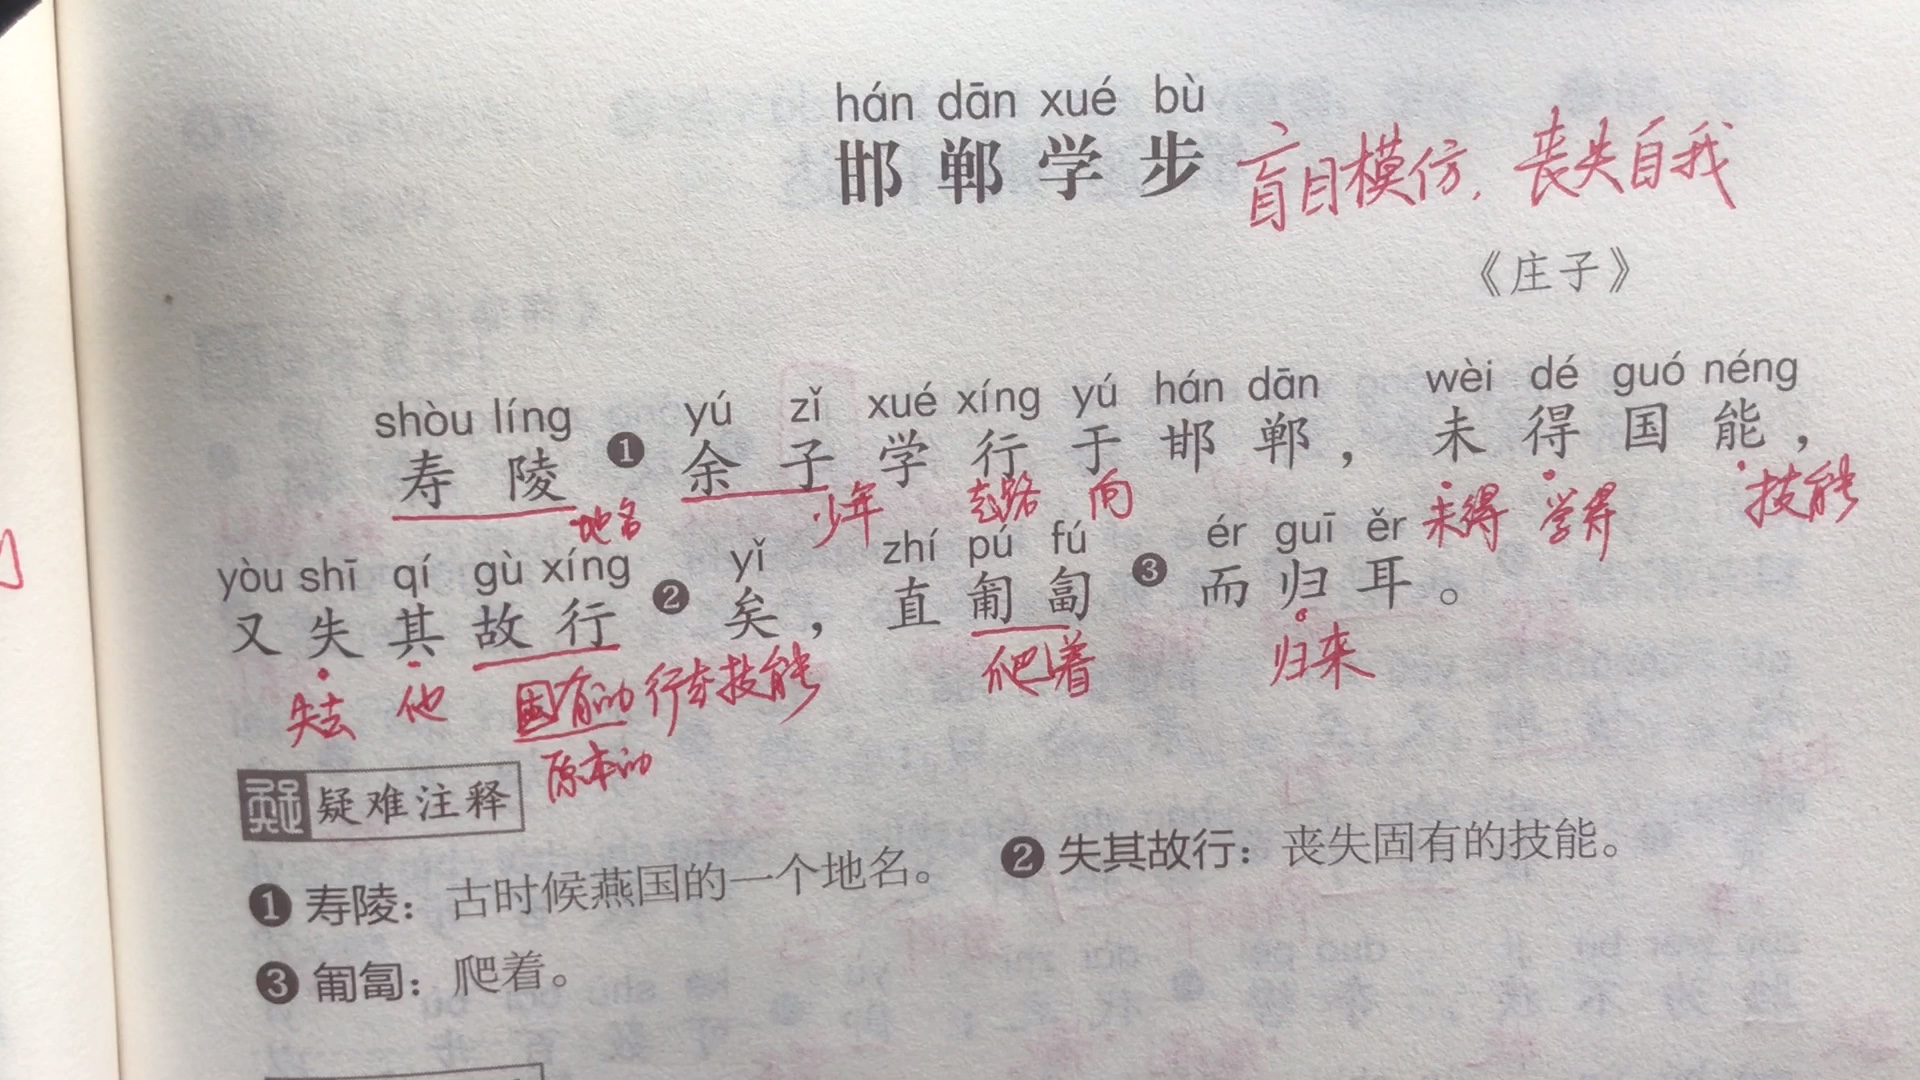 hán dān xué bù
邯郸学步 盲目模仿,丧失自我
《庄子》
shòu líng yú zǐ xué xíng yú hán dān wèi dé guó néng
寿陵❶余子学行于邯郸，未得国能，
地名 少年 走路 向 未得 学得 技能
yòu shī qí gù xíng yǐ zhí pú fú ér guī ěr
又失其故行❷矣，直匍匐❸而归耳。
失去 他 固有的 行走技能 爬着 归来
原本的
疑难注释
❶寿陵：古时候燕国的一个地名。 ❷失其故行：丧失固有的技能。
❸匍匐：爬着。